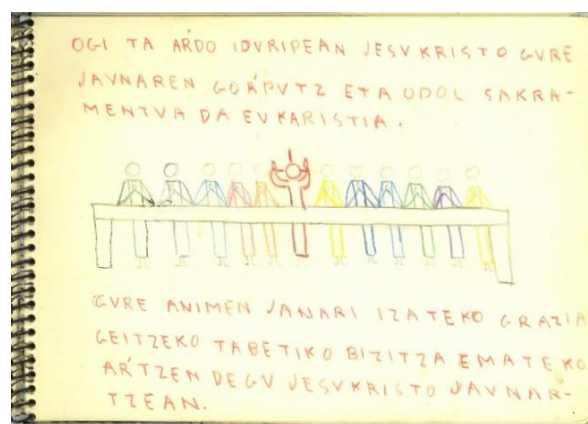 OGI TA AŔDO IDVRIPEAN JESVKRISTO GVRE
JAVNAREN GOŔPVTZ ETA ODOL SAKRA-
MENTVA DA EVKARISTIA.
GVRE ANIMEN JANARI IZATEKO GRAZIA
GEITZEKO TABETIKO BIZITZA EMATEKO
AŔTZEN DEGV JESVKRISTO JAVNAR-
TZEAN.